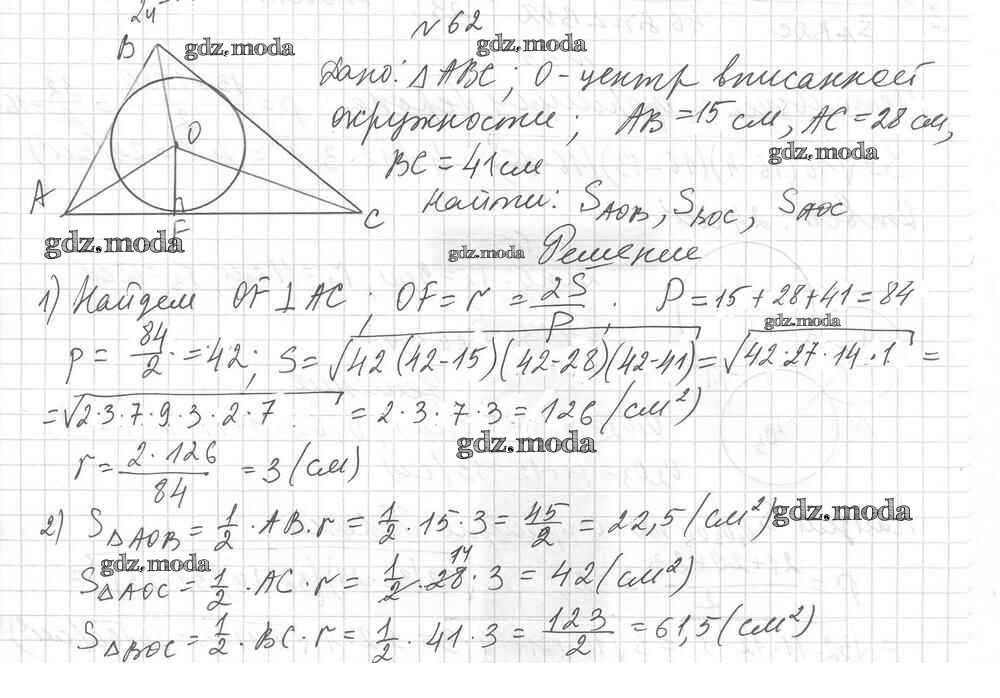 24
N 62
B
gdz.moda
gdz.moda
Дано: △ABC; O - центр вписанной
окружности; AB = 15 см, AC = 28 см,
O
gdz.moda
BC = 41 см
A
C
F
Найти: S_AOB, S_BOC, S_AOC
gdz.moda
gdz.moda
Решение
1) Найдем OF ⊥ AC; OF = r = 2S/P; P = 15 + 28 + 41 = 84
gdz.moda
p = 84/2 = 42; S = √(42(42-15)(42-28)(42-41)) = √(42·27·14·1) =
= √(2·3·7·9·3·2·7) = 2·3·7·3 = 126 (см²)
gdz.moda
r = 2·126/84 = 3 (см)
2) S△AOB = 1/2 · AB · r = 1/2 · 15 · 3 = 45/2 = 22,5 (см²)
gdz.moda
gdz.moda
14
S△AOC = 1/2 · AC · r = 1/2 · 28 · 3 = 42 (см²)
S△BOC = 1/2 · BC · r = 1/2 · 41 · 3 = 123/2 = 61,5 (см²)